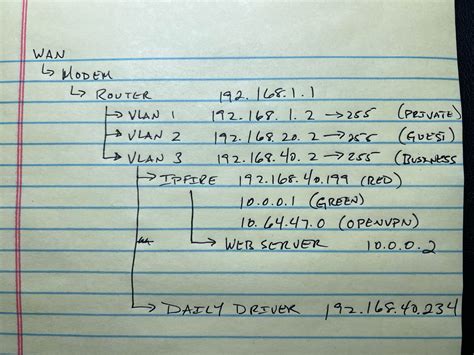 WAN
↳ MODEM
↳ ROUTER 192.168.1.1
→ VLAN 1 192.168.1.2 → 255 (PRIVATE)
→ VLAN 2 192.168.20.2 → 255 (GUEST)
→ VLAN 3 192.168.40.2 → 255 (BUSINESS
→ IPFIRE 192.168.40.199 (RED)
10.0.0.1 (GREEN)
10.64.47.0 (OPENVPN)
→ WEB SERVER 10.0.0.2
→ DAILY DRIVER 192.168.40.234